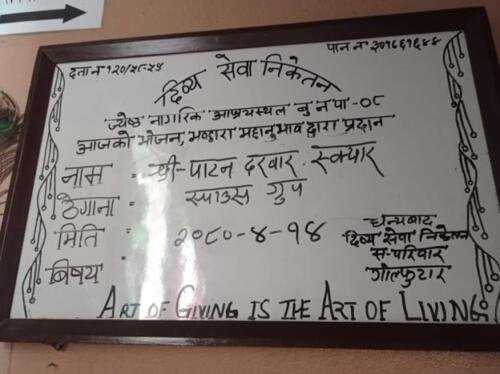 दर्ता नं १२०/५८-५९
पान नं ३०१६६१६४४
दिव्य सेवा निकेतन
ज्येष्ठ नागरिक आश्रयस्थल बु न पा -०८
आजको भोजन, भण्डारा महानुभाव द्वारा प्रदान
नाम = श्री-पाटन दरबार स्क्यार
ठेगाना = स्पाउस ग्रुप
मिति = २०८०-४-१४
बिषय =
धन्यबाद
दिव्य सेवा निकेतन
स-परिवार
गोल्फुटार
ART OF GIVING IS THE ART OF LIVING